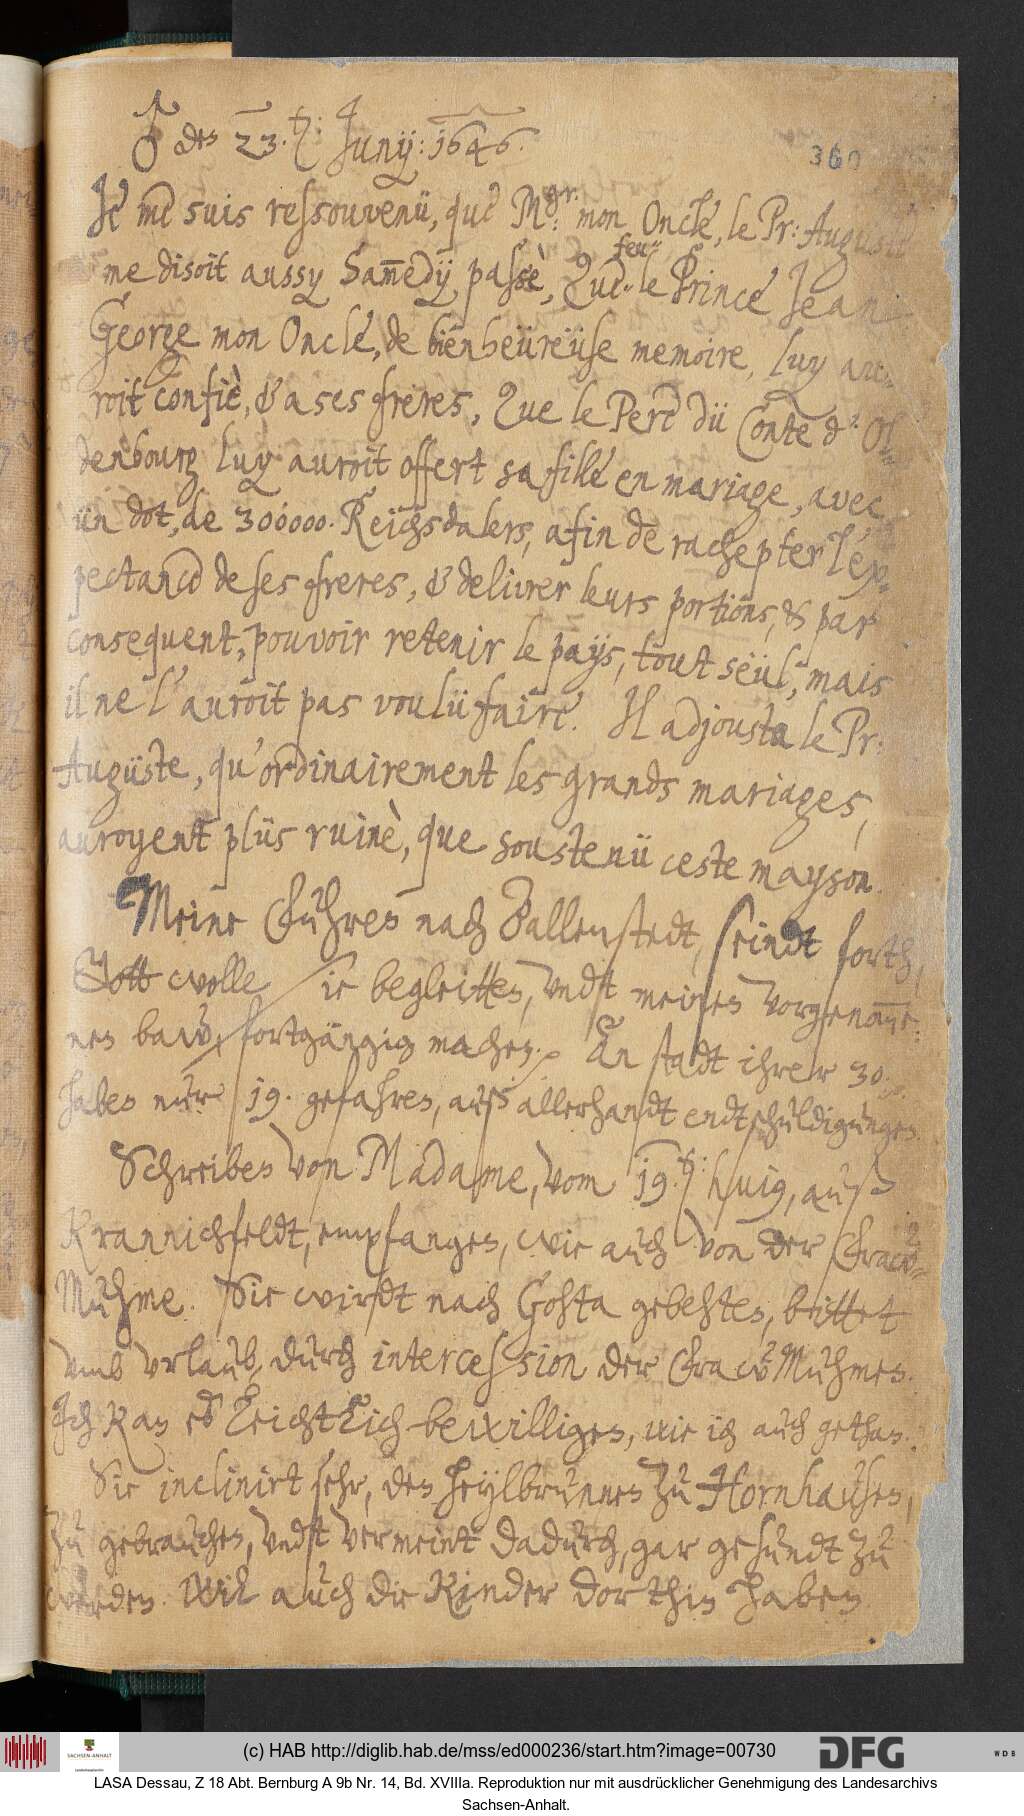 ♂ den 23.ten: Junÿ: 1646.
360
Je me suis ressouvenü, que Mgr: mon Oncle, le Pr: Auguste
me disoit aussy Samedÿ passè, Que feu le Prince Jean
George mon Oncle, de bienheüreüse memoire, luy au-
roit confiè, & a ses freres, Que le Pere dü Conte d'Ol-
denbourg luy auroit offert sa fille en mariage, avec
ün dot, de 300000. Reichsdalers, afin de rachepter l'ex-
pectance de ses freres, & delivrer leurs portions, & par
consequent, pouvoir retenir le païs, tout seül, mais
il ne l'auroit pas voulü faire. Il adjousta le Pr:
Augüste, qu'ordinairement les grands mariages,
auroyent plüs ruinè, que soustenü ceste mayson.
Meine Fuhren nach Ballenstedt, seindt forth,
Gott wolle sie begleitten, undt meinen vorgenomme-
nen baw, fortgängig machen. An stadt ihrer 30
haben nur 19. gefahren, auß allerhandt endtschuldigungen.
Schreiben von Madame, vom 19.ten: huius, auß
Krannichfeldt, empfangen, wie auch von der Fraw
Muhme. Sie wirdt nach Gohta gebehten, bittet
umb urlaub, durch intercession der Fraw Muhmen.
Ich kan es leichtlich bewilligen, wie ich auch gethan.
Sie inclinirt sehr, den heylbrunnen zu Hornhausen,
zu gebrauchen, undt vermeint dadurch, gar gesundt zu
werden. Will auch die Kinder dorthin haben
(c) HAB http://diglib.hab.de/mss/ed000236/start.htm?image=00730
SACHSEN-ANHALT
DFG
WDB
LASA Dessau, Z 18 Abt. Bernburg A 9b Nr. 14, Bd. XVIIIa. Reproduktion nur mit ausdrücklicher Genehmigung des Landesarchivs
Sachsen-Anhalt.